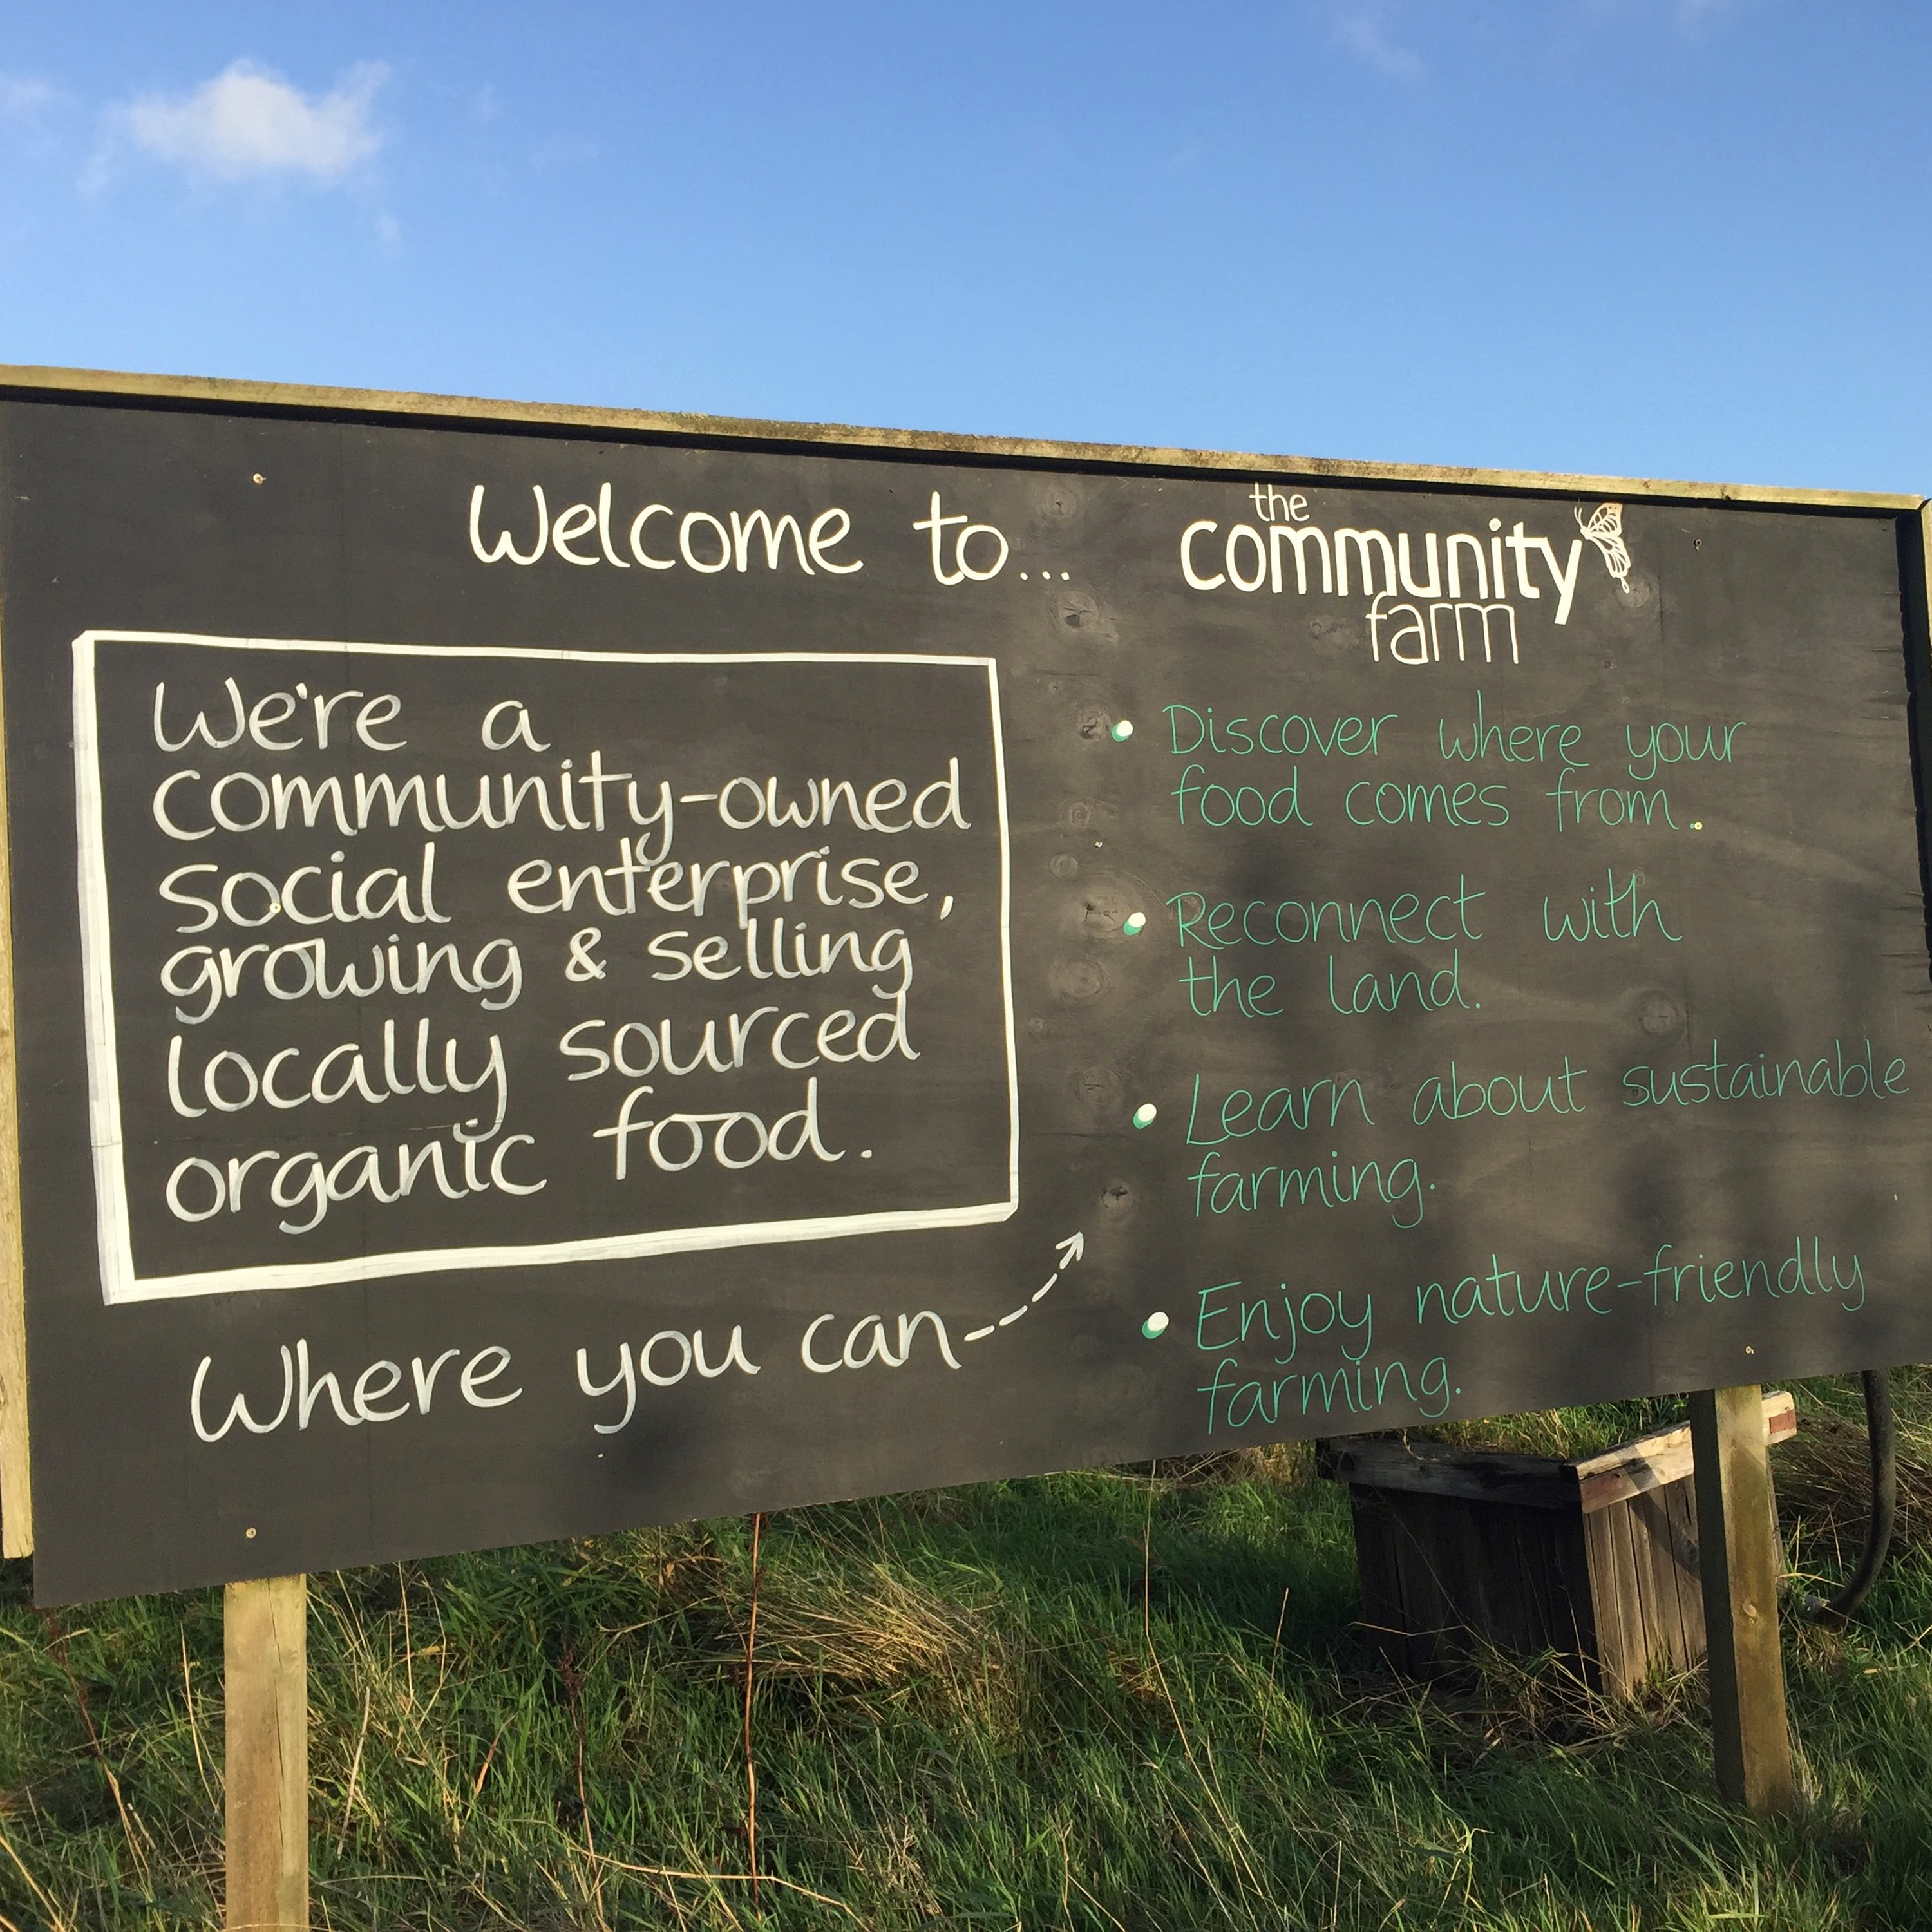 Welcome to...
the
community
farm
We're a
community-owned
social enterprise,
growing & selling
locally sourced
organic food.
Where you can
Discover where your
food comes from.
Reconnect with
the land.
Learn about sustainable
farming.
Enjoy nature-friendly
farming.